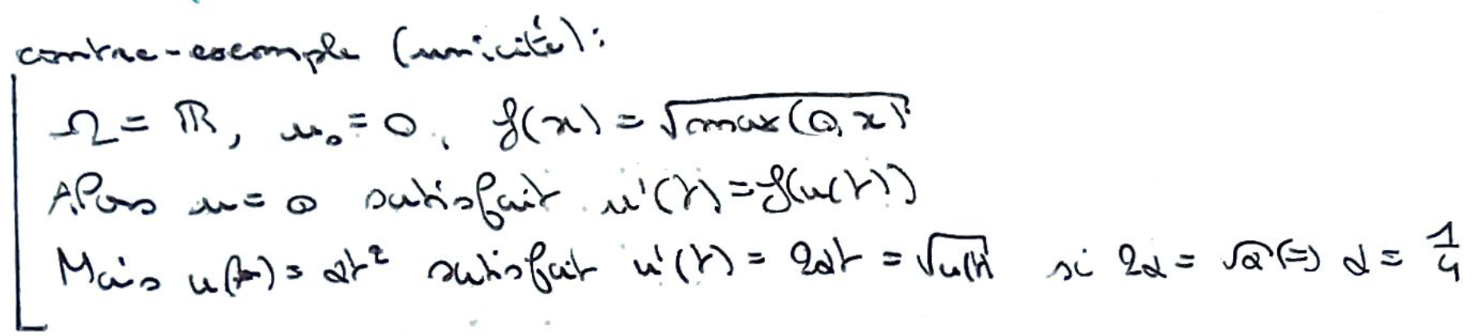 contre-exemple (unicité):
Ω = ℝ, u₀ = 0, f(x) = √max(0,x)
Alors u = 0 satisfait u'(t) = f(u(t))
Mais u(t) = αt² satisfait u'(t) = 2αt = √u(t) si 2α = √α ⇔ α = 1/4